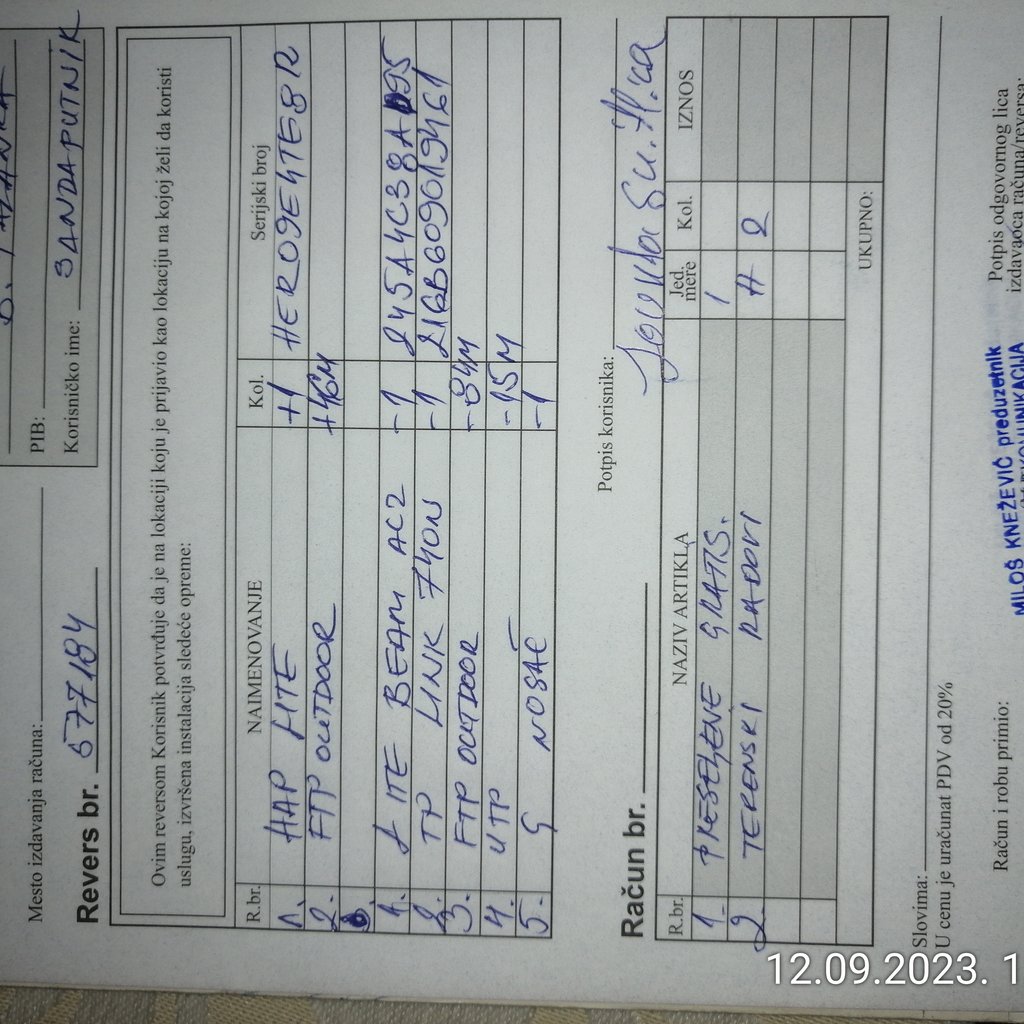 Mesto izdavanja računa:
PIB:
Korisničko ime: SANDAPUTNIK
Revers br. 57784
Ovim reversom Korisnik potvrđuje da je na lokaciji koju je prijavio kao lokaciju na kojoj želi da koristi
uslugu, izvršena instalacija sledeće opreme:
R.br. NAIMENOVANJE Kol. Serijski broj
1. HAP LITE +1 HERO9E4TE8R
2. FTP OUTDOOR +46M
1. LITE BEAM AC2 -1 245A4C38A D95
2. TP LINK 740N -1 216B609019461
3. FTP OUTDOOR -84M
4. UTP -15M
5. G NOSAČ -1
Potpis korisnika:
Račun br.
R.br. NAZIV ARTIKLA Jed. mere Kol. IZNOS
1. PRESELENE GRATIS. 1
2. TERENSKI RADOVI H 2
UKUPNO:
Slovima:
U cenu je uračunat PDV od 20%
Račun i robu primio:
Potpis odgovornog lica
izdavaoca računa/reversa:
MILOŠ KNEŽEVIĆ preduzetnik
12.09.2023. 1